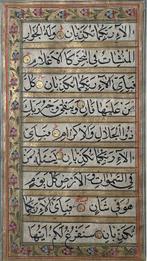 الآءِ رَبِّكُمَا تُكَذِّبَانِ وَلَهُ الْجَوَارِ
الْمُنْشَاٰتُ فِي الْبَحْرِ كَالْاَعْلَامِ
فَبِاَيِّ الآءِ رَبِّكُمَا تُكَذِّبَانِ كُلُّ
مَنْ عَلَيْهَا فَانٍ وَيَبْقٰى وَجْهُ رَبِّكَ
ذُو الْجَلَالِ وَالْاِكْرَامِ فَبِاَيِّ
الآءِ رَبِّكُمَا تُكَذِّبَانِ يَسْئَلُهُ مَنْ
فِي السَّمٰوَاتِ وَالْاَرْضِ كُلَّ يَوْمٍ
هُوَ فِي شَاْنٍ فَبِاَيِّ الآءِ رَبِّكُمَا
تُكَذِّبَانِ سَنَفْرُغُ لَكُمْ اَيُّهَا